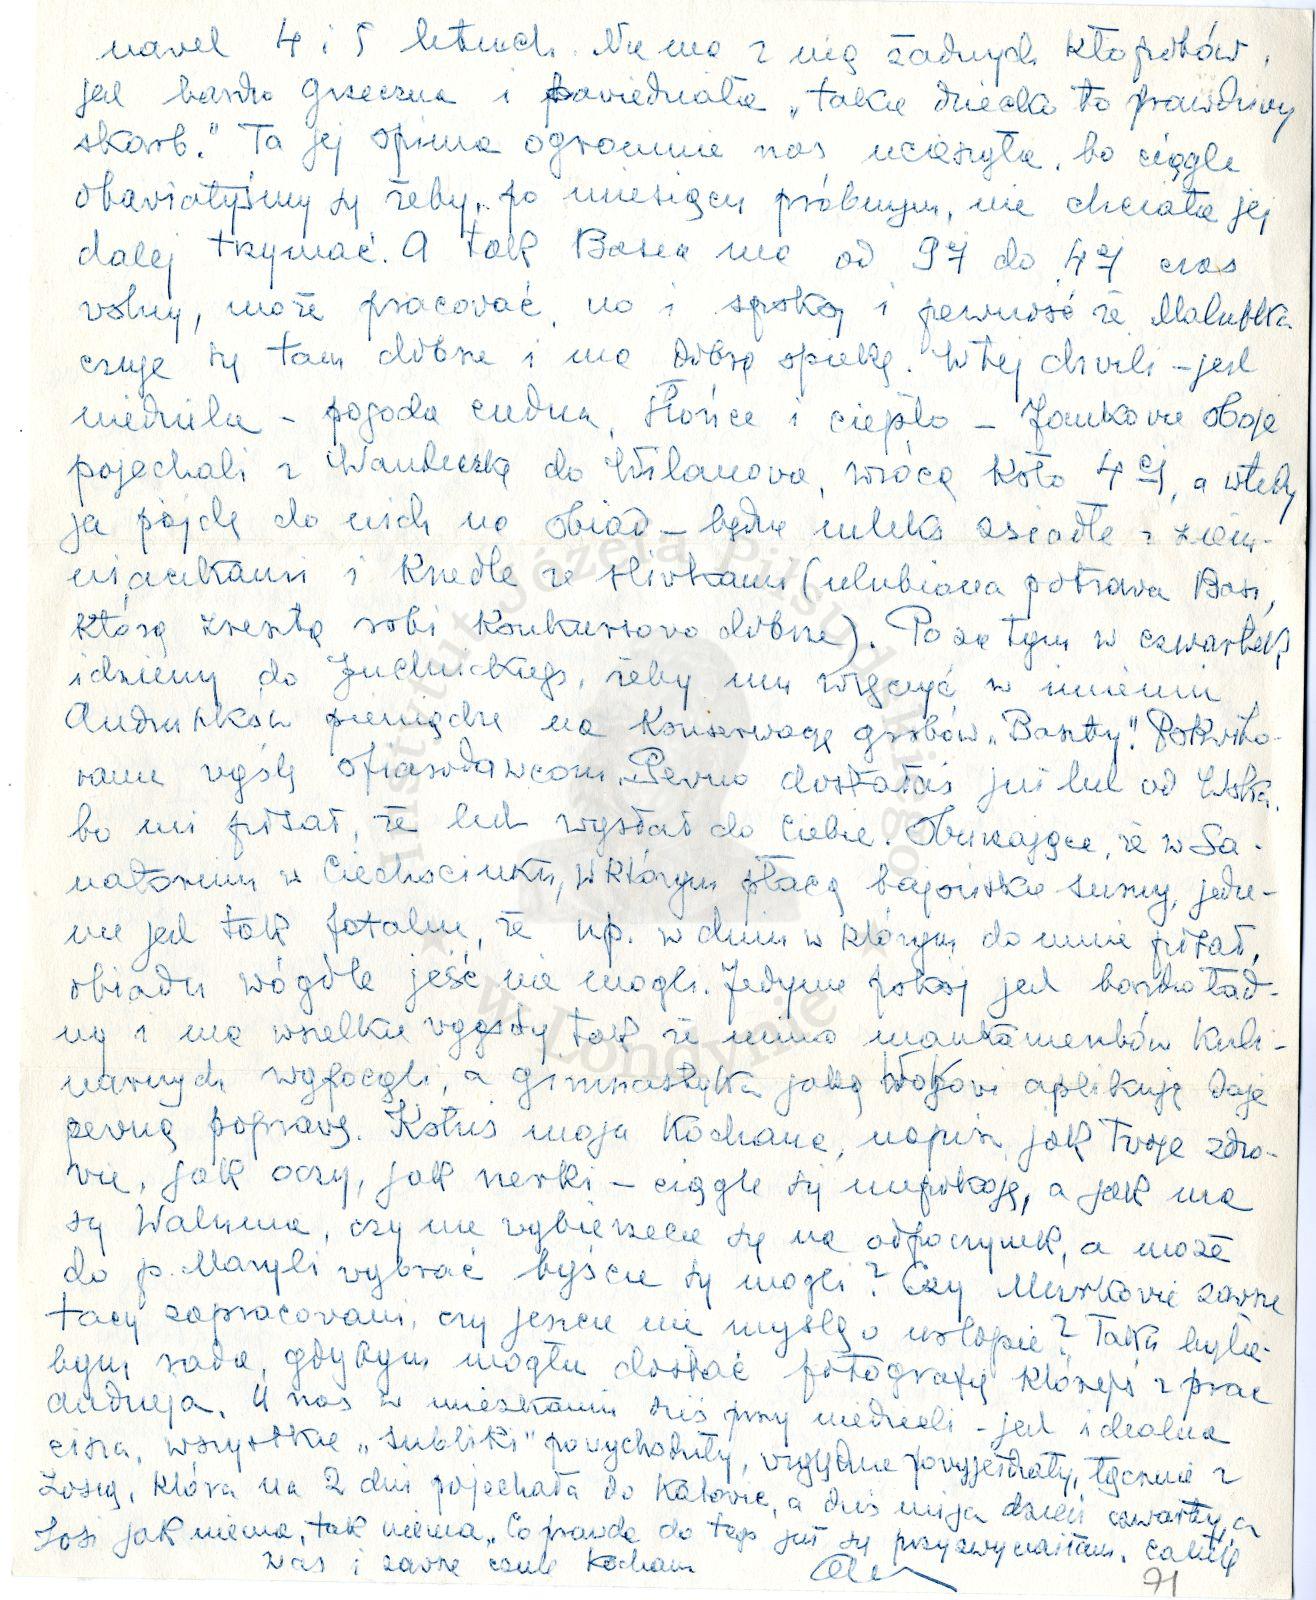 nawet 4 i 5 letnich. Nie ma z nią żadnych kłopotów,
jest bardzo grzeczna i powiedziała „takie dziecko to prawdziwy
skarb." Ta jej opinia ogromnie nas ucieszyła, bo ciągle
obawiałyśmy się żeby, po miesiącu próbnym, nie chciała jej
dalej trzymać. A tak Basia ma od 9ej do 4ej czas
wolny, może pracować, no i spokój i pewność że Malutka
czuje się tam dobrze i ma dobrą opiekę. W tej chwili – jest
niedziela – pogoda cudna, słońce i ciepło – Jankowie oboje
pojechali z Wandeczką do Wilanowa, wrócą koło 4ej, a wtedy
ja pójdę do nich na obiad – będzie mleko zsiadłe z ziem-
niaczkami i knedle ze śliwkami (ulubiona potrawa Basi,
którą zresztą robi konkursowo dobrze). Poza tym w czwartek
idziemy do żeby mu wręczyć w imieniu
pieniądze na konserwację grobów „Baszty". Pokwito-
wanie wyślę ofiarodawcom. Pewno dostałaś już list od
bo mi pisał, że list wysłał do Ciebie. Oburzające, że w Sa-
natorium w Ciechocinku, w którym płacą bajońskie sumy, jedze-
nie jest tak fatalne, że np. w dniu w którym do mnie pisał,
obiadu wogóle jeść nie mogli. Jedynie pokój jest bardzo ład-
ny i ma wszelkie wygody tak że mimo mankamentów kuli-
narnych wypoczęli, a gimnastyka jaką aplikują daje
pewną poprawę. Kotuś moja kochana, napisz, jak Twoje zdro-
wie, jak oczy, jak nerki – ciągle się niepokoję, a jak ma
się Walunia, czy nie wybierzecie się na odpoczynek, a może
do p. Maryli wybrać byście się mogli? Czy zawsze
tacy zapracowani, czy jeszcze nie myślą o urlopie? Taka była-
bym rada, gdybym mogła dostać fotografię któregoś z prac
Andrzeja. U nas w mieszkaniu dziś przy niedzieli – jest idealna
cisza, wszystkie „subliki" powychodziły, względnie powyjeżdżały, łącznie z
Zosią, która na 2 dni pojechała do Katowic, a dziś mija dzień czwarty, a
Zosi jak niema, tak niema. Co prawda do tego już się przyzwyczaiłam. Całuję
Was i zawsze czule kocham
71
Instytut Józefa Piłsudskiego
w Londynie